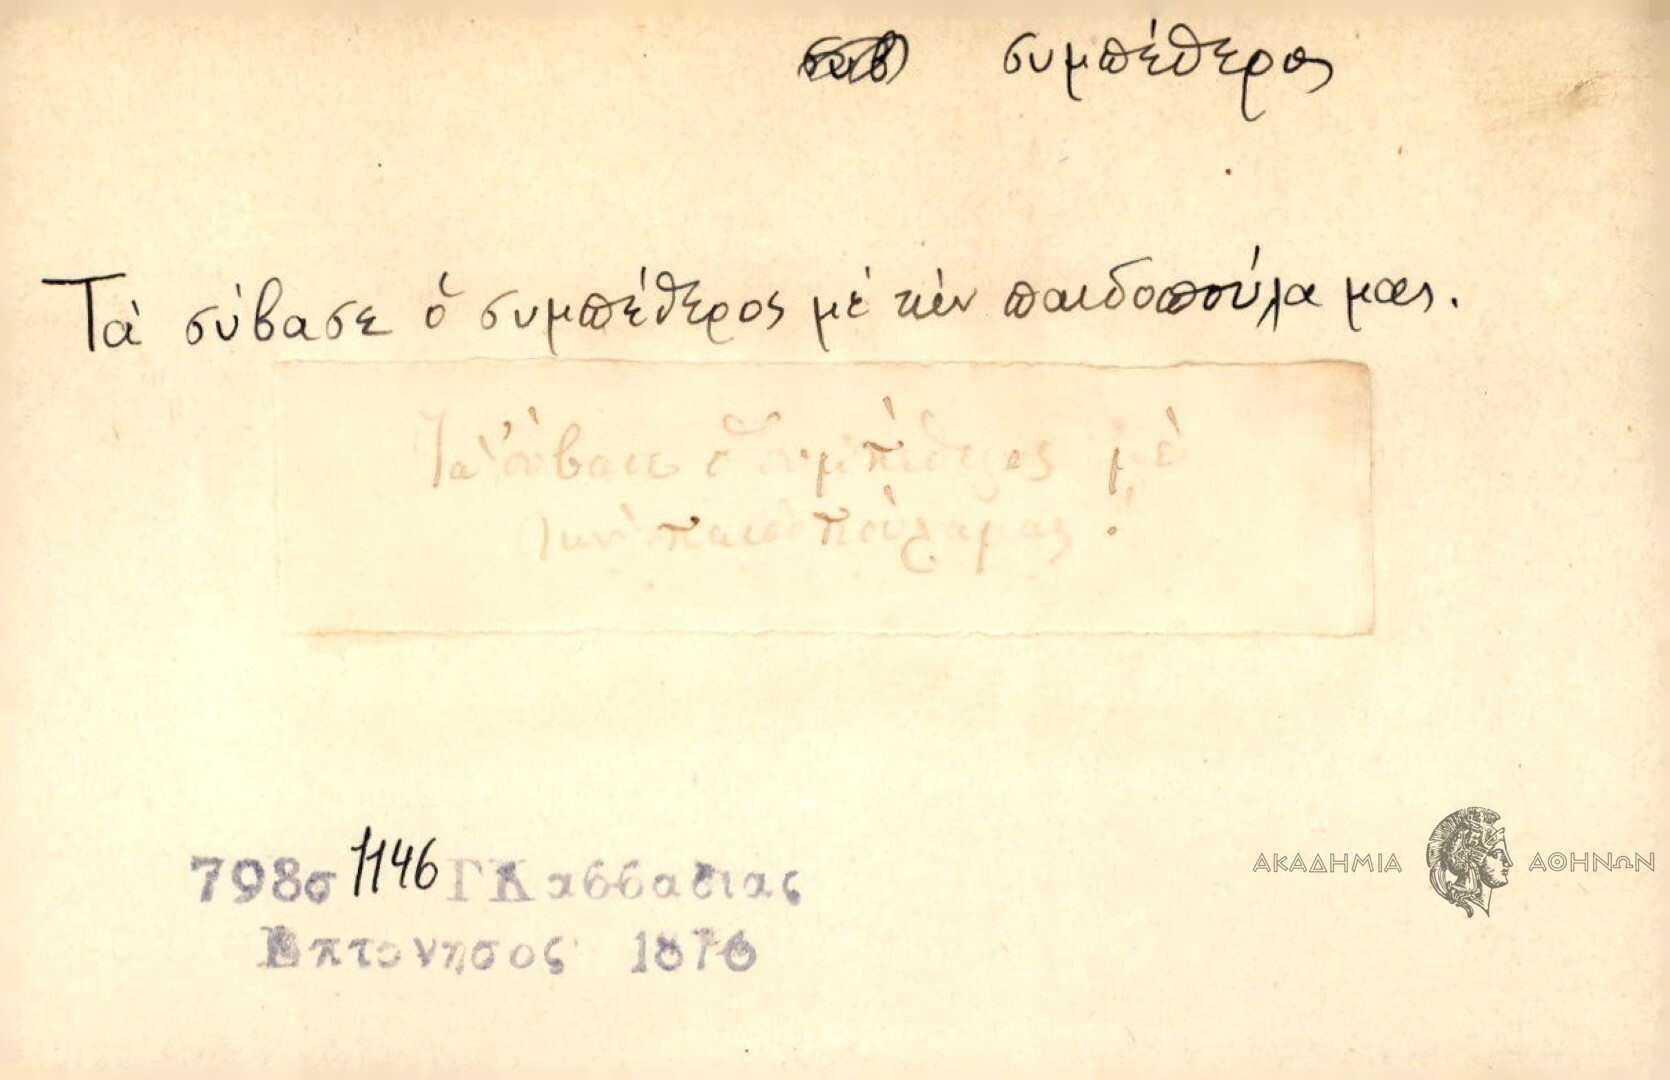 συμπέθερος
Τὰ σύβασε ὁ συμπέθερος μὲ τὴν παιδοπούλα μας.
Τὰ σύβασε ὁ συμπέθερος μὲ
τὴν παιδοπούλα μας.
798σ 1146 Γ Καββαδίας
Επτάνησος 1876
ΑΚΑΔΗΜΙΑ ΑΘΗΝΩΝ